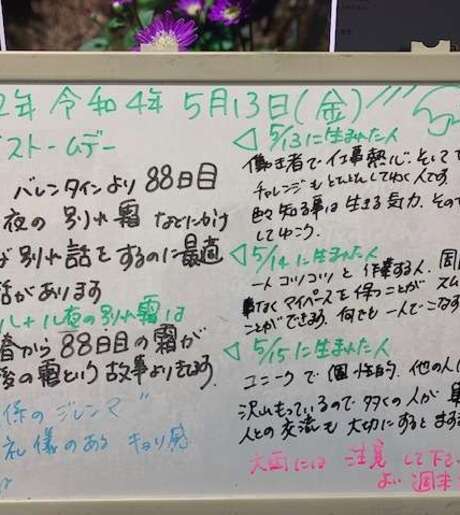 2年 令和4年 5月13日(金)
ストームデー
バレンタインより 88日目
夜の 別れ 霜 などにかけ
ば 別れ話をするのに最適
話があります
八十八夜の別れ霜は
春から88日目の霜が
後の霜という故事よりきてます
係のジレンマ"
礼儀のある キョリ感
◁ 5/13に生まれた人
働き者で仕事熱心。そして
チャレンジも どんどんしてゆく人です。
色々知る事は 生きる気力、その
してゆこう。
◁ 5/14に生まれた人
一人 コツコツと 作業する人、周
事なく マイペースを 保つことが スム
ことができます。何でも 一人でこなす
◁ 5/15に生まれた人
ユニークで 個性的、他の人に
沢山もっているので 多くの人が
人との交流も 大切にすると ますます
大雨には 注意 して下さ
よい 週末